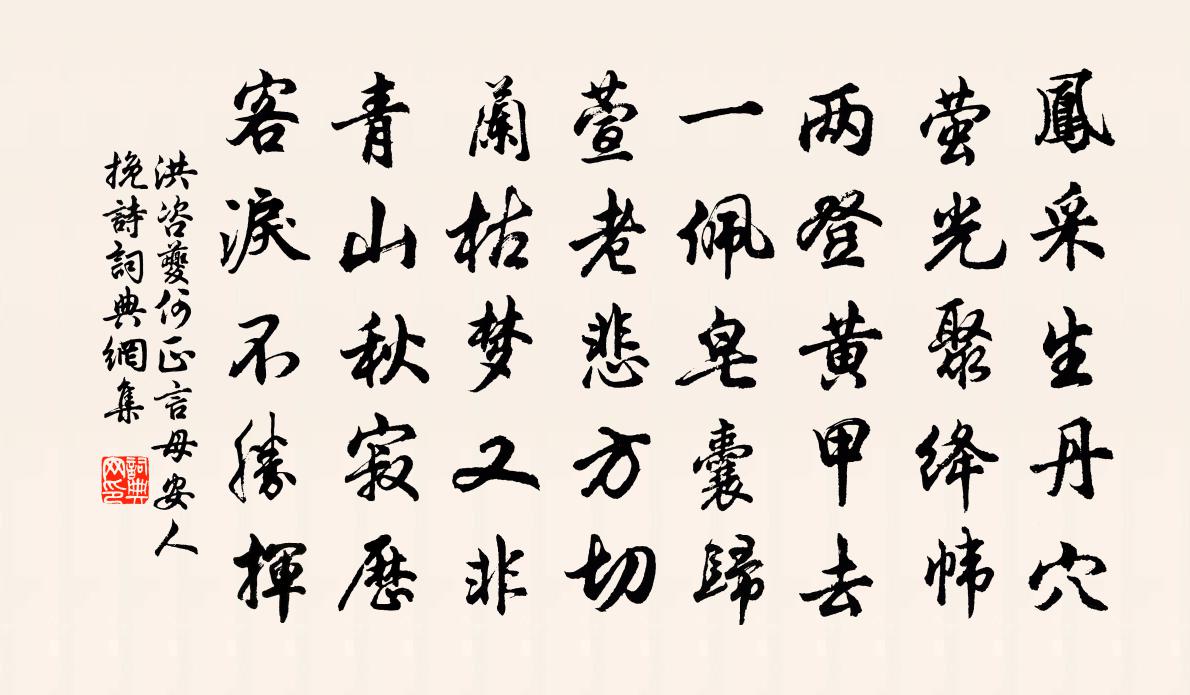 鳳采生丹穴
萤光聚绛帏
两登黄甲去
一佩皂囊歸
萱老悲方切
蘭枯梦又非
青山秋寂歷
客淚不勝揮
洪咨夔何正言母安人
挽詩詞典網集
詞典
网印